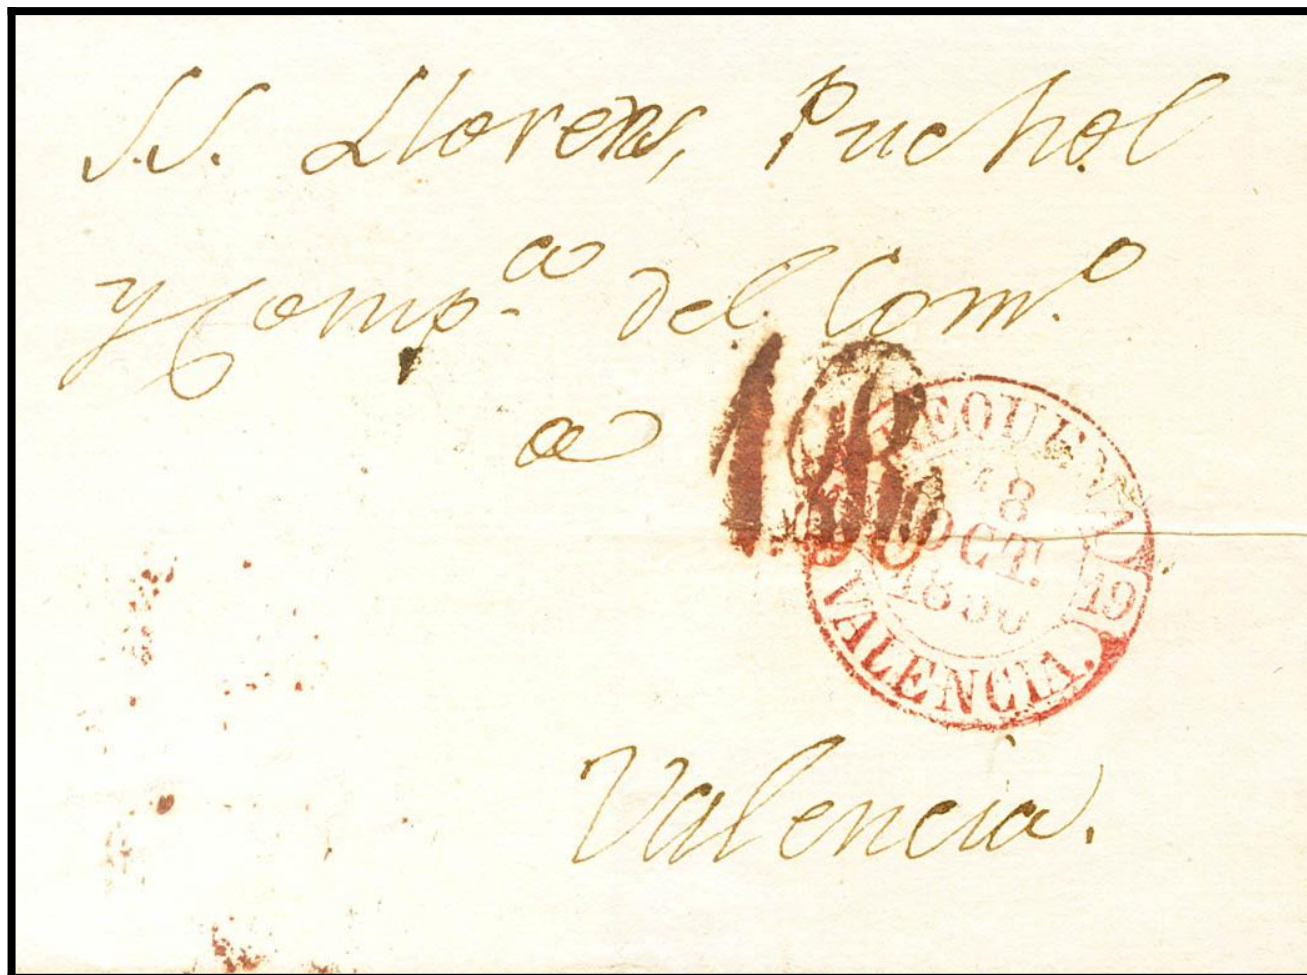 S.S. Llorens, Puchol
y Comp.ª del Com.º
a
REQUENA
OCT.
19
VALENCIA.
Valencia.